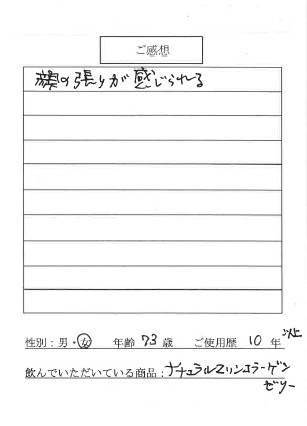 ご感想
顔の張りが感じられる
性別：男・女 年齢 73 歳 ご使用歴 10 年以上
飲んでいただいている商品：ナチュラルマリンコラーゲンゼリー